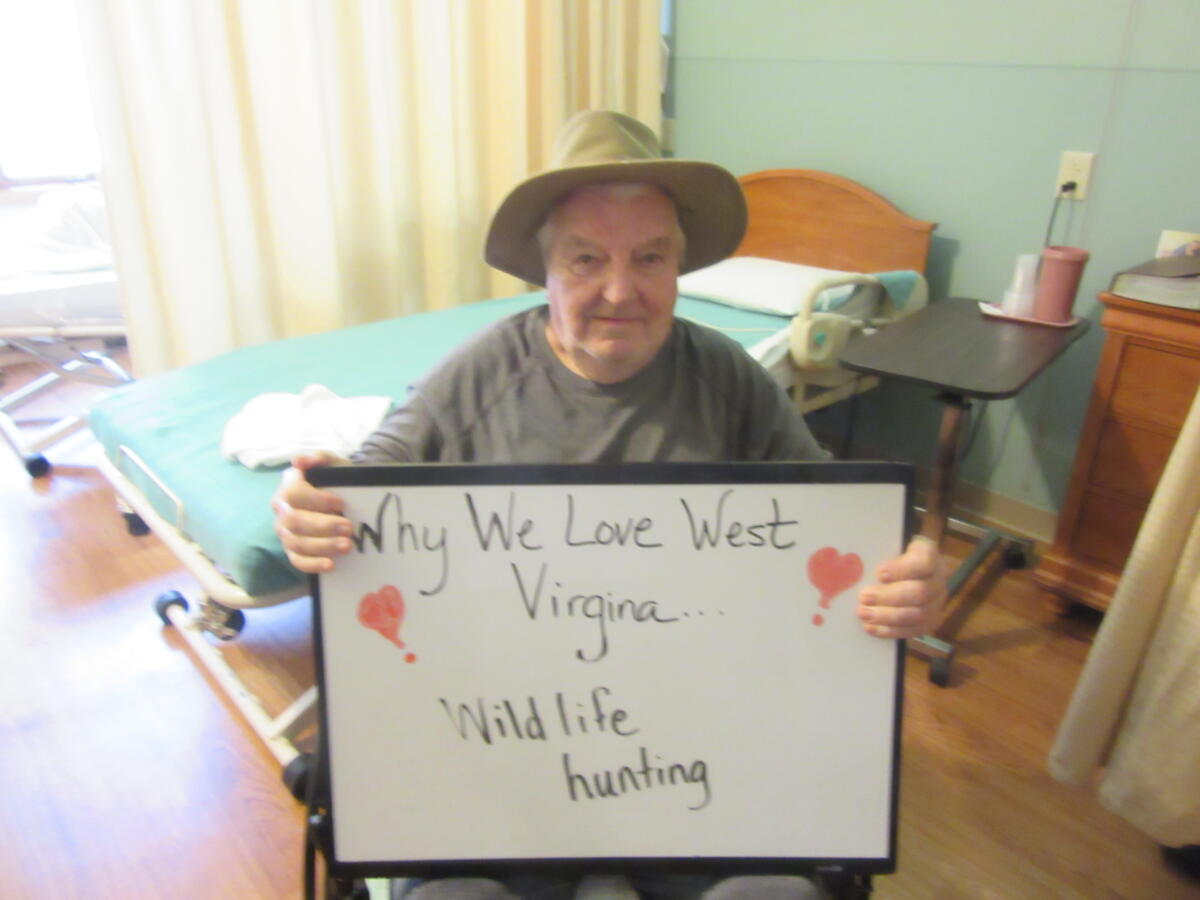 Why We Love West
Virgina...
Wildlife
hunting